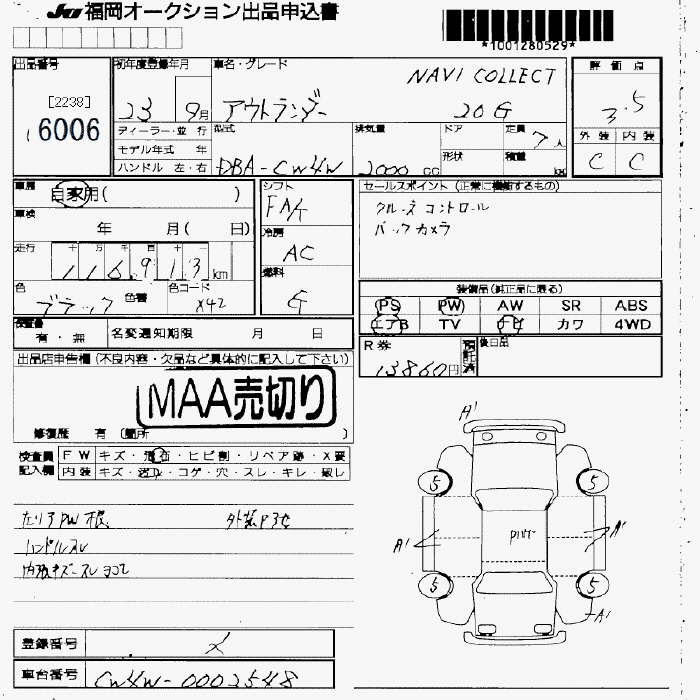 JU 福岡オークション出品申込書
*1001280529*
出品番号
[2238]
6006
初年度登録年月
23 9月
車名・グレード
NAVI COLLECT
アウトランダー 20G
評価点
3.5
外装 内装
C C
ディーラー・並行
モデル年式 年
ハンドル 左・右
型式
DBA-CW4W
排気量
2000 CC
ドア
形状
定員
7人
積量
kg
車歴
自家用( )
車検
年 月( 日)
走行
十 万 千 百 十 一
116,913 km
色
ブラック
色替
色コード
X42
シフト
FAT
冷房
AC
燃料
G
セールスポイント (正常に機能するもの)
クルーズコントロール
バックカメラ
装備品(純正品に限る)
PS PW AW SR ABS
エアB TV ナビ カワ 4WD
検査書
有・無
名変通知期限 月 日
R券
13860円
預託済
後日品
出品店申告欄 (不良内容・欠品など具体的に記入して下さい)
MAA売切り
修復歴 有 (箇所 )
検査員
記入欄
FW キズ・飛石・ヒビ割・リペア跡・X要
内装 キズ・汚コレ・コゲ・穴・スレ・キレ・破レ
左リアPW 不良 外装P3七
ハンドルスレ
内張キズ・スレ ヨゴレ
A'
5
5
A'
PUT
A'
5
5
A'
登録番号
メ
車台番号
CW4W-0002548